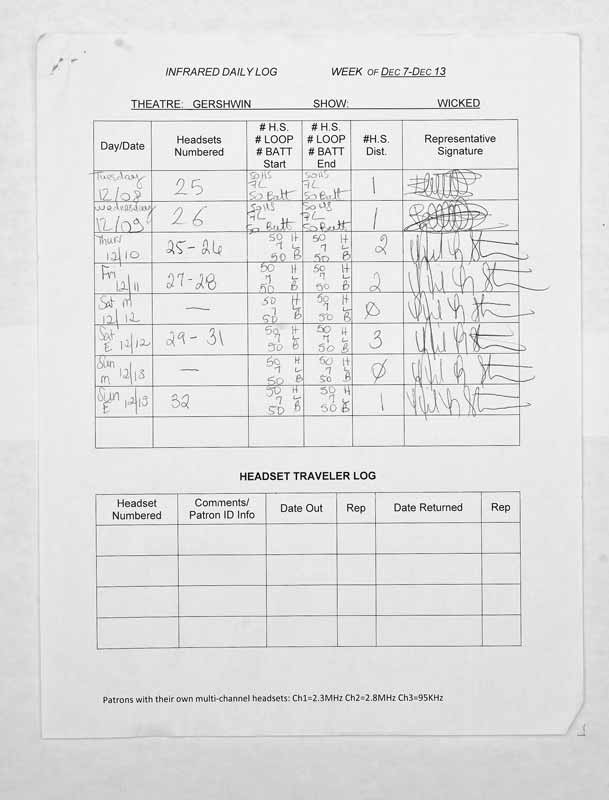 INFRARED DAILY LOG WEEK OF DEC 7-DEC 13
THEATRE: GERSHWIN SHOW: WICKED
Day/Date
Headsets
Numbered
# H.S.
# LOOP
# BATT
Start
# H.S.
# LOOP
# BATT
End
#H.S.
Dist.
Representative
Signature
Tuesday
12/08
25
50HS
7L
50 Batt
50HS
7L
50 Batt
1
Wednesday
12/09
26
50HS
7L
50 Batt
50 HS
7L
50 Batt
1
Thur
12/10
25-26
50 H
7 L
50 B
50 H
7 L
50 B
2
Fri
12/11
27-28
50 H
7 L
50 B
50 H
7 L
50 B
2
Sat M
12/12
—
50 H
7 L
50 B
50 H
7 L
50 B
0
Sat
E 12/12
29-31
50 H
7 L
50 B
50 H
7 L
50 B
3
Sun
m 12/13
—
50 H
7 L
50 B
50 H
7 L
50 B
0
Sun
E 12/13
32
50 H
7 L
50 B
50 H
7 L
50 B
1
HEADSET TRAVELER LOG
Headset
Numbered
Comments/
Patron ID Info
Date Out
Rep
Date Returned
Rep
Patrons with their own multi-channel headsets: Ch1=2.3MHz Ch2=2.8MHz Ch3=95KHz